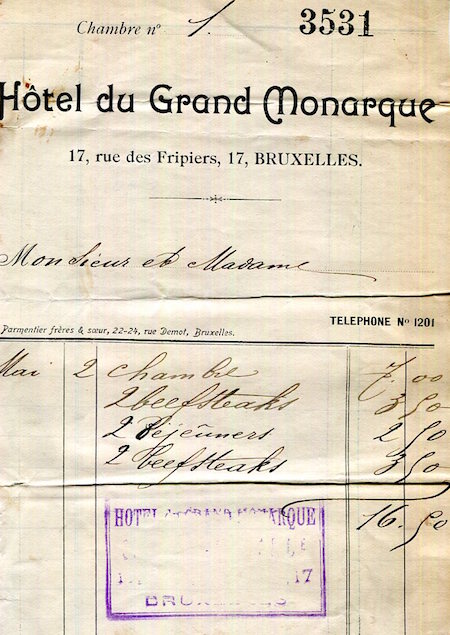 Chambre nº 1. 3531
Hôtel du Grand Monarque
17, rue des Fripiers, 17, BRUXELLES.
Monsieur et Madame
Parmentier frères & sœur, 22-24, rue Demot, Bruxelles.
TELEPHONE Nº 1201
Mai 2 chambre 7,00
2 beefsteaks 3,50
2 Déjeuners 2,50
2 beefsteaks 3,50
16.50
HOTEL GRAND MONARQUE
17
BRUXELLES